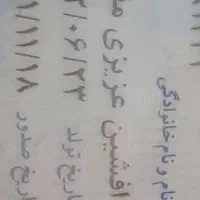 نام و نام خانوادگی
افشین عزیزی
تاریخ تولد ۲/۰۶/۲۳
تاریخ صدور ۱/۱۱/۱۸